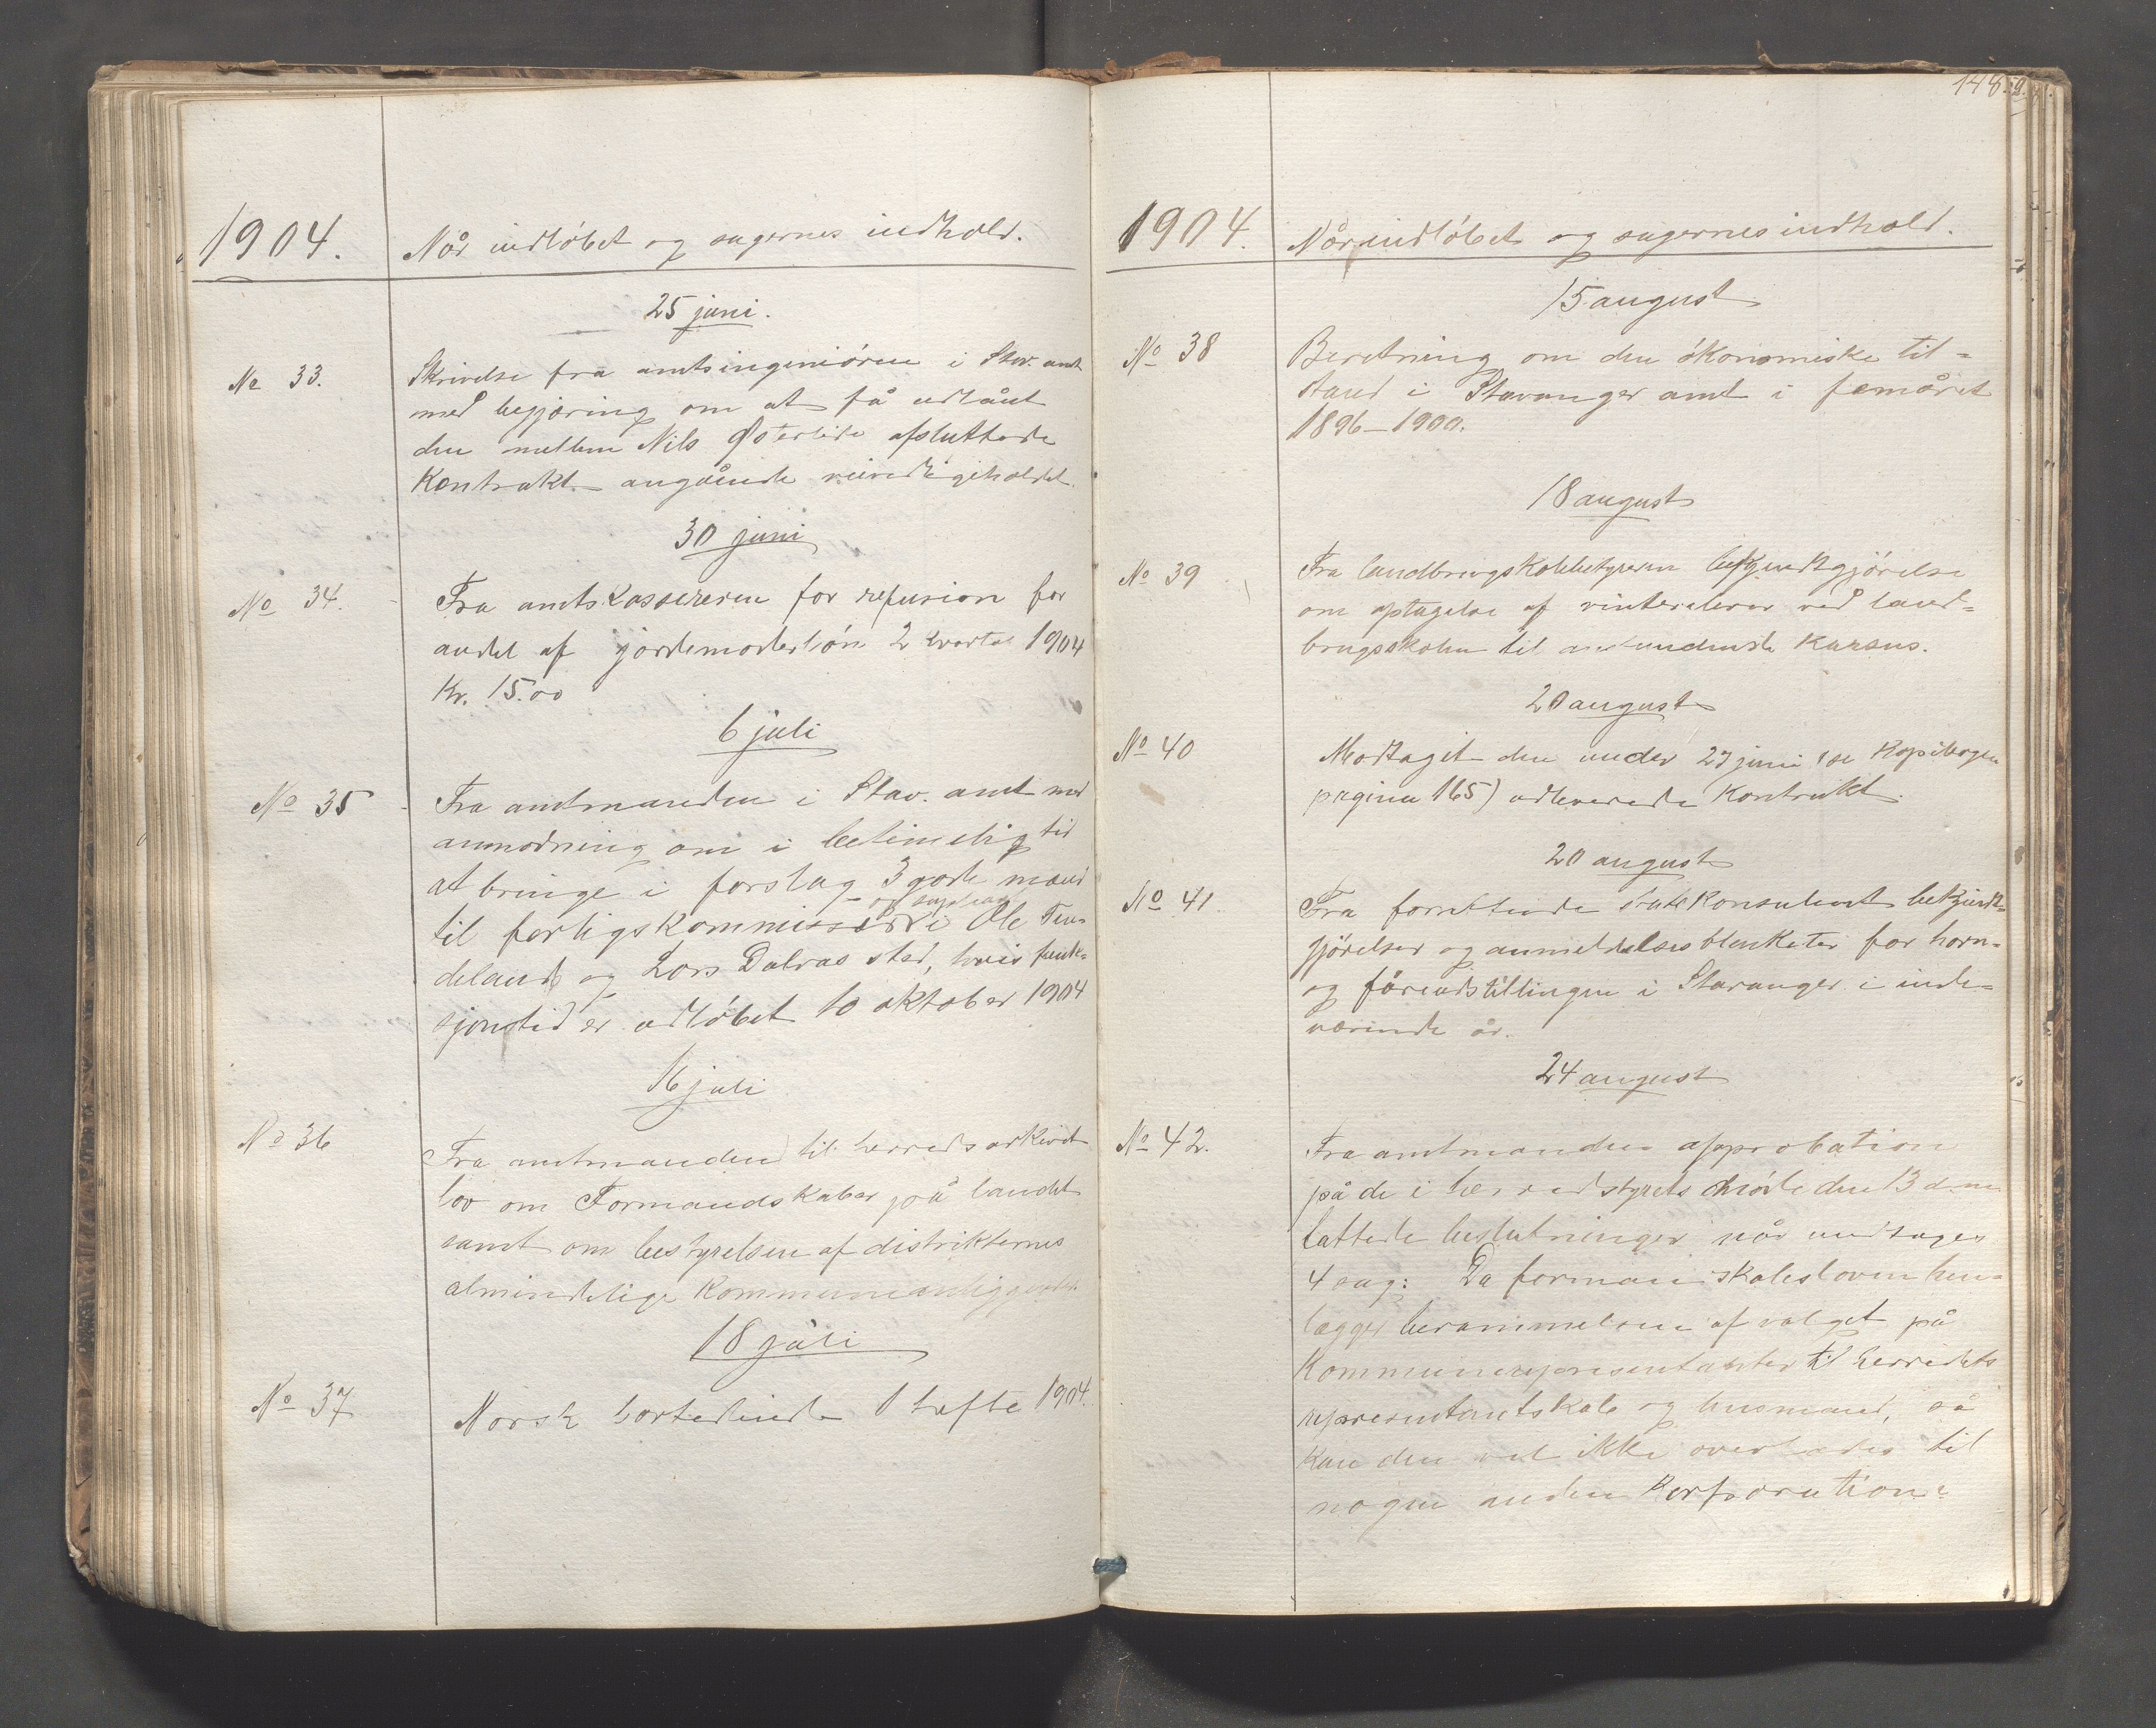 1904.
Når indløbet og sagernes indhold.
25 juni.
No 33.
Skrivelse fra amtsingeniøren i Stav. amt
med begjæring om at få udlånt
den mellem Nils Østerlide afsluttede
Kontrakt angående veivedligeholdel.
30 juni
No 34.
Fra amtskassereren for refusion for
andel af jordemoderløn 2 kvartal 1904
Kr. 15.00
6 juli
No 35
Fra amtmanden i Stav. amt med
anmodning om i betimelig tid
at bringe i forslag 3 gode mænd
til forligskommissær i Ole
deland og Lars Dalvas sted, hvis funk-
sjonstid er udløbet 10 oktober 1904
16 juli
No 36
Fra amtmanden til herredsarkivet
lov om Formandskaber på landet
samt om bestyrelsen af distrikternes
almindelige Kommuneanliggender.
18 juli
No 37
Norsk lovtidende 1 hefte 1904.
148.
1904.
Når indløbet og sagernes indhold.
15 august
No 38
Beretning om den økonomiske til=
stand i Stavanger amt i femåret
1896-1900.
18 august
No 39
Fra landbrugskolebestyreren bekjendtgjørelse
om optagelse af vinterelever ved land=
brugsskolen til kursus.
20 august
No 40
Modtaget den under 27 juni (se Kopibogen
pagina 165) udleverede Kontrakt.
20 august
No 41
Fra forrettende statskonsulent bekjendt=
gjørelser og anmeldelsesblanketter for horn=
og fåreudstillingen i Stavanger i inde=
værende år.
24 august
No 42.
Fra amtmanden approbation
på de i herredstyrets møde den 13 d.m.
fattede beslutninger når undtages
4 sag: Da formanskabsloven hen=
lægger berammelsen af valget på
Kommunerepresentanter til herredets
representantskab og husmænd, så
kan den vel ikke overlades til
nogen anden Korporation.